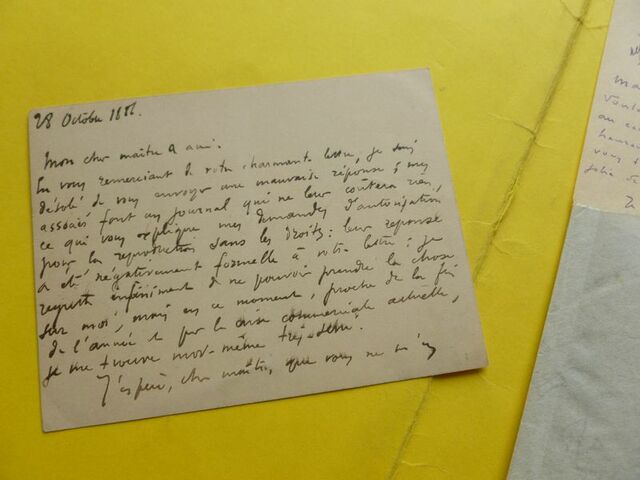 28 Octobre 1886.
Mon cher maître & ami.
En vous remerciant de votre charmante lettre, je suis
désolé de vous envoyer une mauvaise réponse ; mes
associés font un journal qui ne leur coûtera rien,
ce qui vous explique mes demandes d'autorisation
pour la reproduction sans les droits : leur réponse
a été négativement formelle à votre lettre : je
regrette infiniment de ne pouvoir prendre la chose
sur moi, mais en ce moment, proche de la fin
de l'année & par la crise commerciale actuelle,
je me trouve moi-même très
J'espère, cher maître, que vous ne